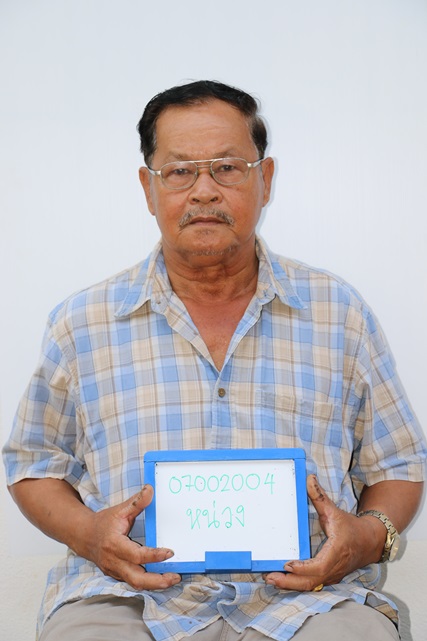 07002004
หน่วง